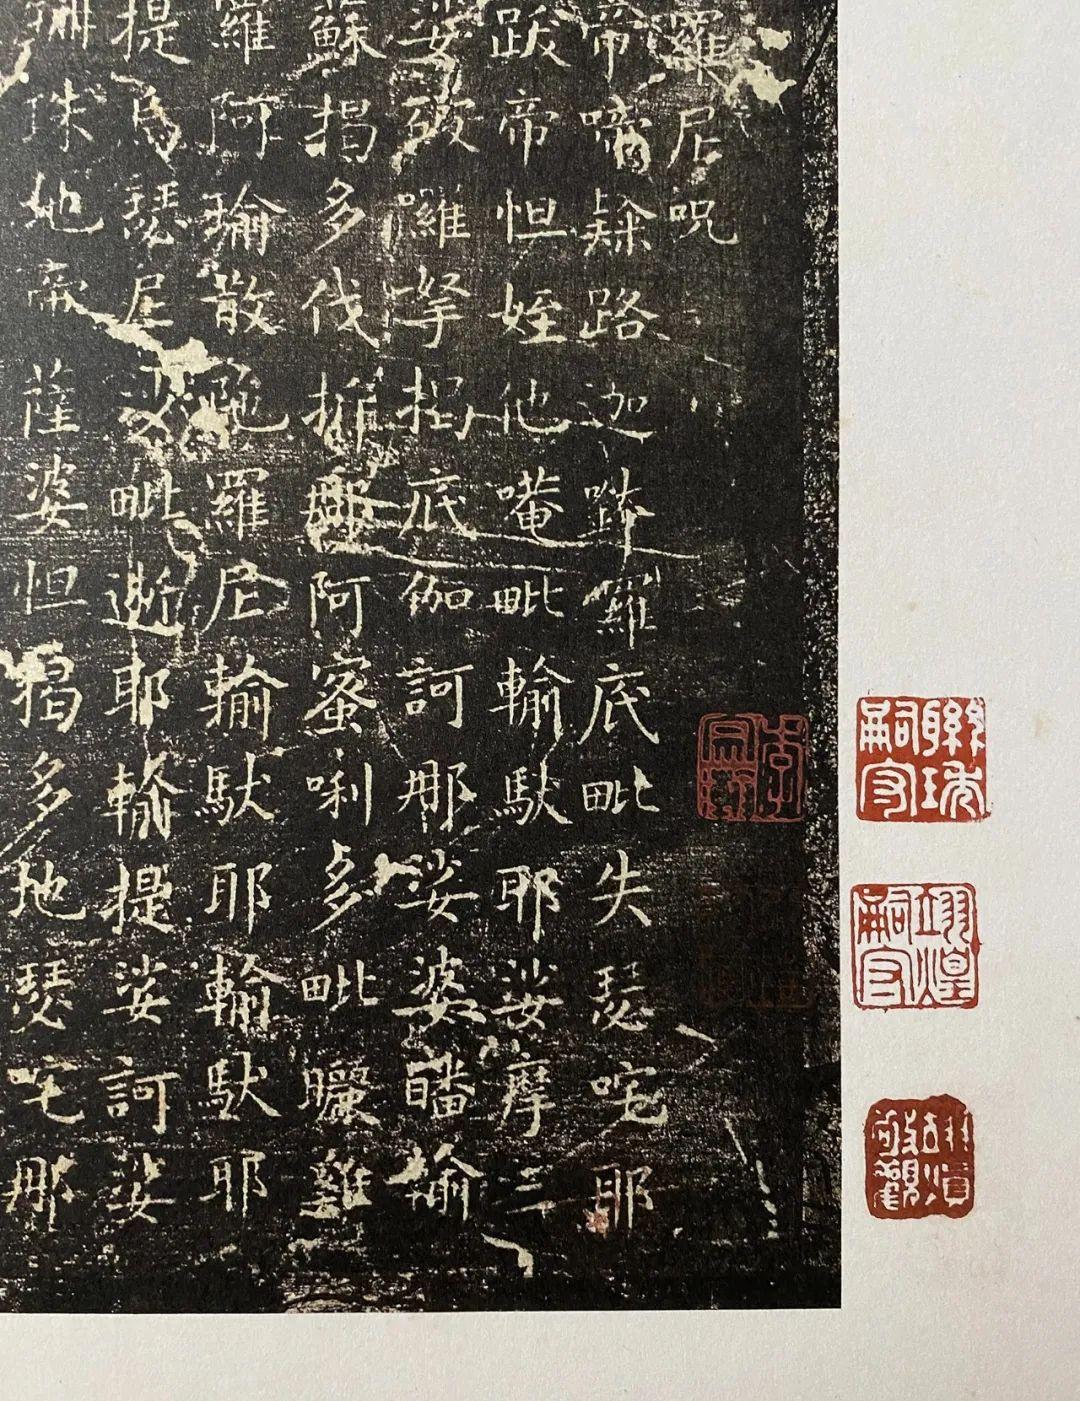 羅尼呪
帝路迦囉底毗失瑟咤耶
跋帝怛姪他唵毗輸馱耶娑摩三
娑破囉拏揭底伽訶那娑婆皤輸
蘇揭多伐那阿蜜唎多毗曬雞
羅阿瑜散陀羅尼輸馱耶輸馱耶
提烏瑟尼沙毗逝耶輸提娑訶娑
珠地帝薩婆怛揭多地瑟咤那
翊煌嗣守